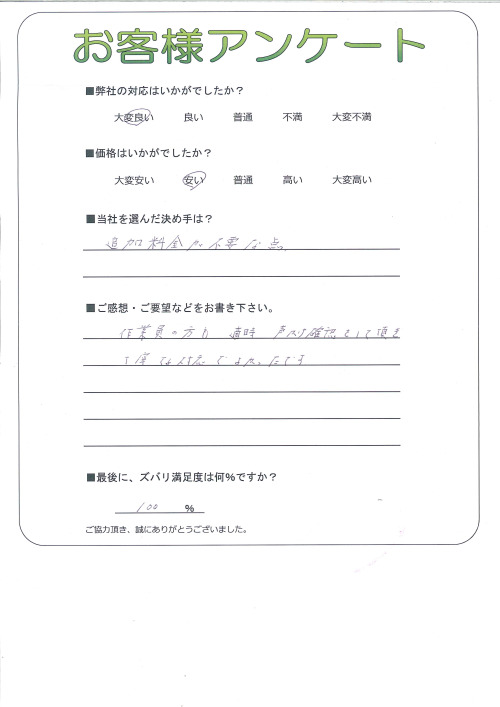 お客様アンケート
■弊社の対応はいかがでしたか？
大変良い 良い 普通 不満 大変不満
■価格はいかがでしたか？
大変安い 安い 普通 高い 大変高い
■当社を選んだ決め手は？
追加料金が不要な点
■ご感想・ご要望などをお書き下さい。
作業員の方も 適時 声かけ確認をして頂き
丁寧な対応でよかったです
■最後に、ズバリ満足度は何％ですか？
100 ％
ご協力頂き、誠にありがとうございました。